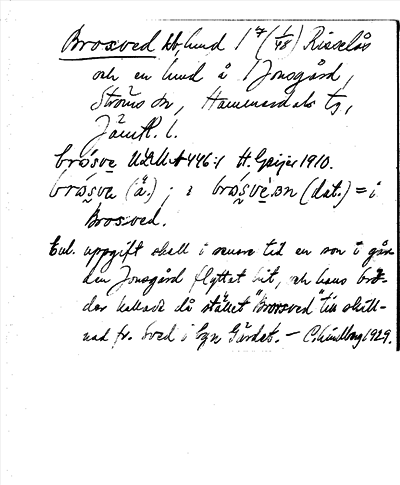 Brosved bb, lund 1⁷ (1/48) Risselås
och en lund å Jonsgård,
Ströms sn, Hammerdals tg,
Jämtl. l.
brósve ULMA 446:1 H. Geijer 1910.
brósve (å.) ; i brósvè.on (dat.) = i
Brosved.
Enl. uppgift skall i senare tid en son i går-
den Jonsgård flyttat hit, och hans brö-
der kallade då stället "Brosved" till skill-
nad fr. Sved i byn Gärdet. — C. Lindberg 1929.